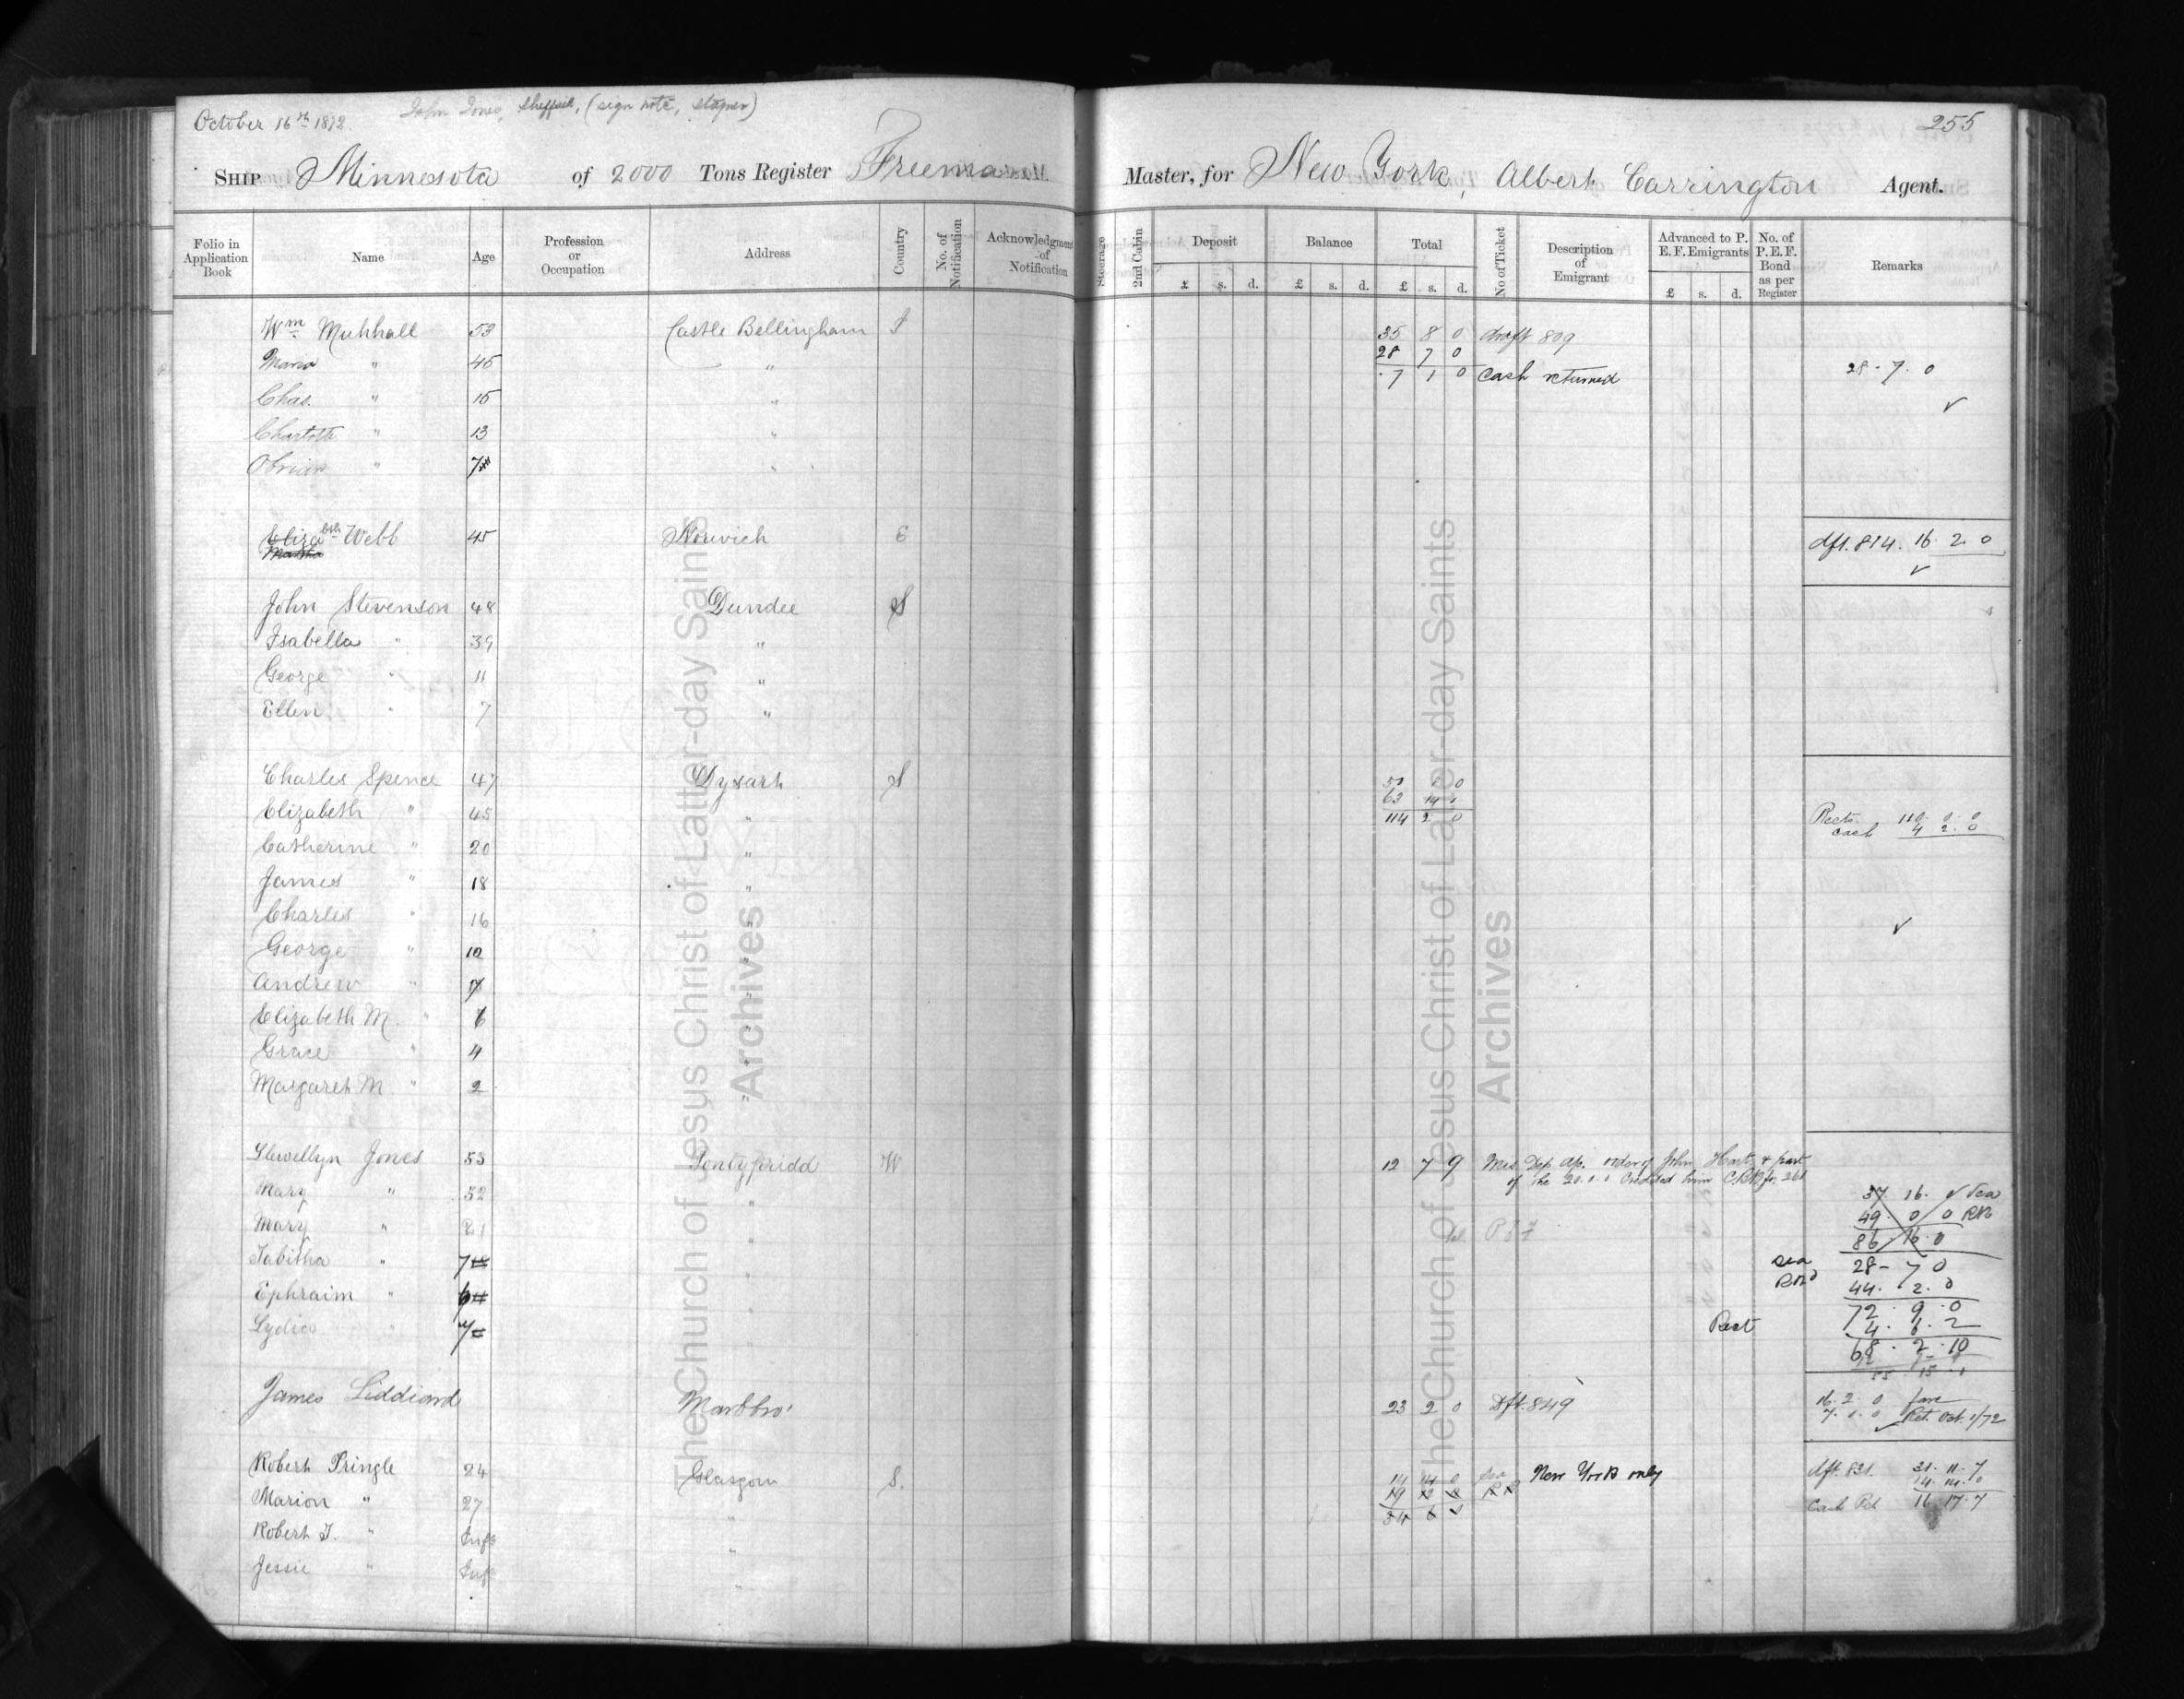 October 16th 1872. John Jones, Sheffield, (sign note, stayner)
255
SHIP Minnesota of 2000 Tons Register Freeman Master, for New York, Albert Carrington Agent.
Folio in Application Book | Name | Age | Profession or Occupation | Address | Country | No. of Notification | Acknowledgment of Notification | Steerage | 2nd Cabin | Deposit £ s. d. | Balance £ s. d. | Total £ s. d. | No of Ticket | Description of Emigrant | Advanced to P. E. F. Emigrants £ s. d. | No. of P. E. F. Bond as per Register | Remarks
Wm Muhhall 53 Castle Bellingham I 35 8 0 draft 809
Maria " 45 " 28 7 0 28 - 7. 0
7 1 0 cash returned
Chas. " 15 " ✓
Charlotte " 13 "
Obrian " 7 "
Elizabeth Webb 45 Norwich E dft. 814. 16. 2. 0
✓
John Stevenson 48 Dundee S
Isabella " 39 "
George " 11 "
Ellen " 7 "
Charles Spence 47 Dysart S 51 8 0
Elizabeth " 45 " 62 14 0
114 2 0 Rects. 110. 0. 0
cash 4 2. 0
Catherine " 20 "
James " 18 "
Charles " 16 " ✓
George " 10 "
Andrew " 7 "
Elizabeth M. " 6 "
Grace " 4 "
Margaret M. " 2 "
Llewellyn Jones 53 Pontypridd W 12 7 9 Mes Dep. Ap. order of John Hart & part
of the 20. 0. 0 Credited him
Mary " 52 " 37 16. 0 Sea
Mary " 21 " 49. 0 0 RR
86. 16. 0
Tabitha " 7 " sea 28 - 7 0
Ephraim " 6 " RRd 44. 2. 0
72. 9. 0
Lydia " 7 " Rect 4. 6. 2
68. 2. 10
55 15
James Liddiard Marlbro' 23 2 0 Dft. 849 16. 2. 0 fare
7. 0. 0 Ret. Oct. 1/72
Robert Pringle 24 Glasgow S. 14 14 0 Sea New York only dft. 821. 31. 11. 7
Marion " 27 " 19 RR 14. 14. 0
Cash Rd 16 17. 7
Robert J. " Inft "
Jessie " Inft "
The Church of Jesus Christ of Latter-day Saints
Archives
The Church of Jesus Christ of Latter-day Saints
Archives